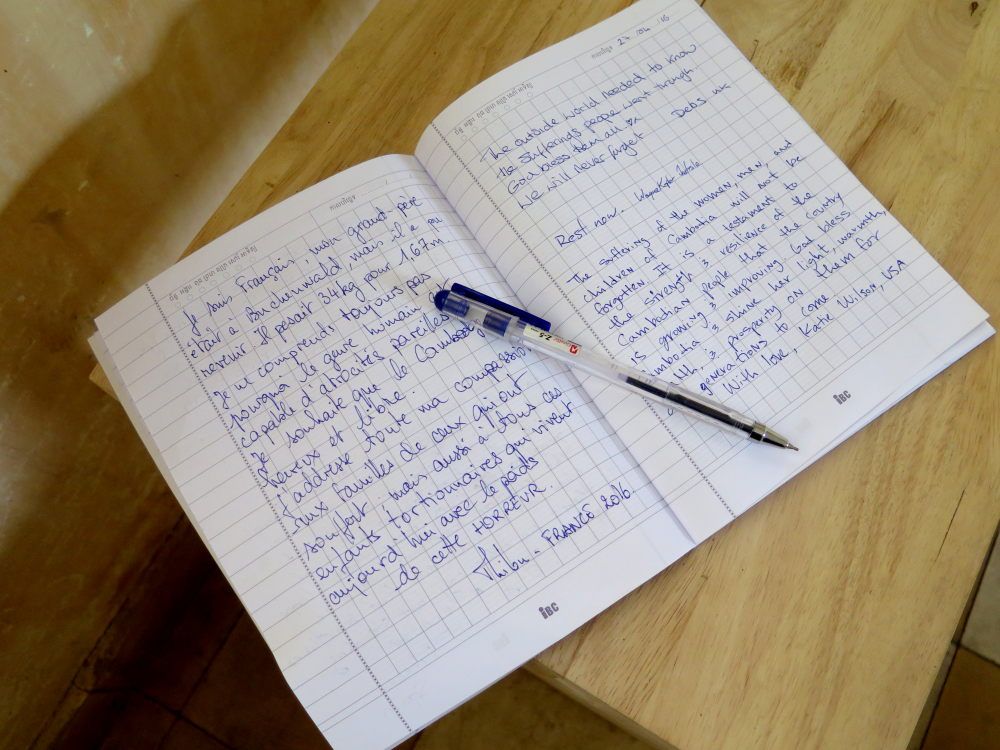 Je suis Français, mon grand-père
était à Buchenwald, mais il a pu
revenir. Il pesait 34kg pour 1.67m.
Je ne comprends toujours pas
pourquoi le genre humain
capable d'atrocités pareilles
Je souhaite que le Cambodge
heureux et libre.
J'addresse toute ma compassion
aux familles de ceux qui ont
souffert, mais aussi à tous ces
enfants tortionnaires qui vivent
aujourd'hui avec le poids
de cette HORREUR.
FRANCE 2016.
iBC
The outside world needed to know
the sufferings people went through
God bless them all
We will never forget
Debs UK
Rest now.
The suffering of the women, men, and
children of Cambodia will not be
forgotten. It is a testament to
the strength & resilience of the
Cambodian people that the country
is growing & improving. God bless
Cambodia & shine her light, warmth,
& prosperity on them for
generations to come
With love, Katie Wilson, USA
iBC